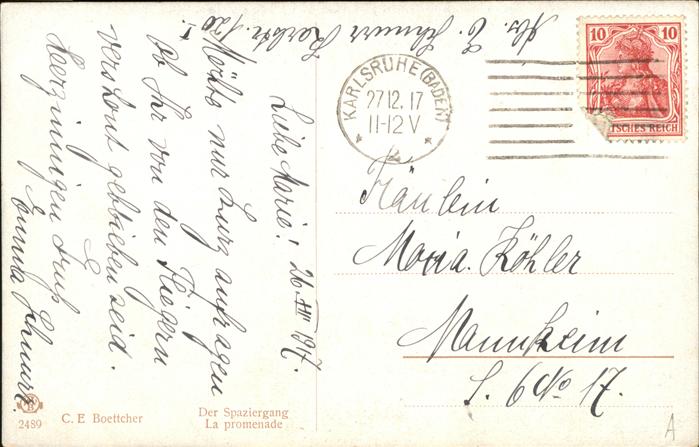 Abs. E. Schnurr Karlstr. 120
Liebe Marie! 26.XII 1917.
Möchte nur kurz anfragen
ob Ihr von den Fliegern
verschont geblieben seid.
Herzinnigen Gruß
Emma Schnurr.
KARLSRUHE (BADEN)
27.12.17
11-12 V
* 2 *
10 10
TSCHES REICH
Fräulein
Maria Köhler
Mannheim
S. 6 No 17.
2489
C. E Boettcher
Der Spaziergang
La promenade
A